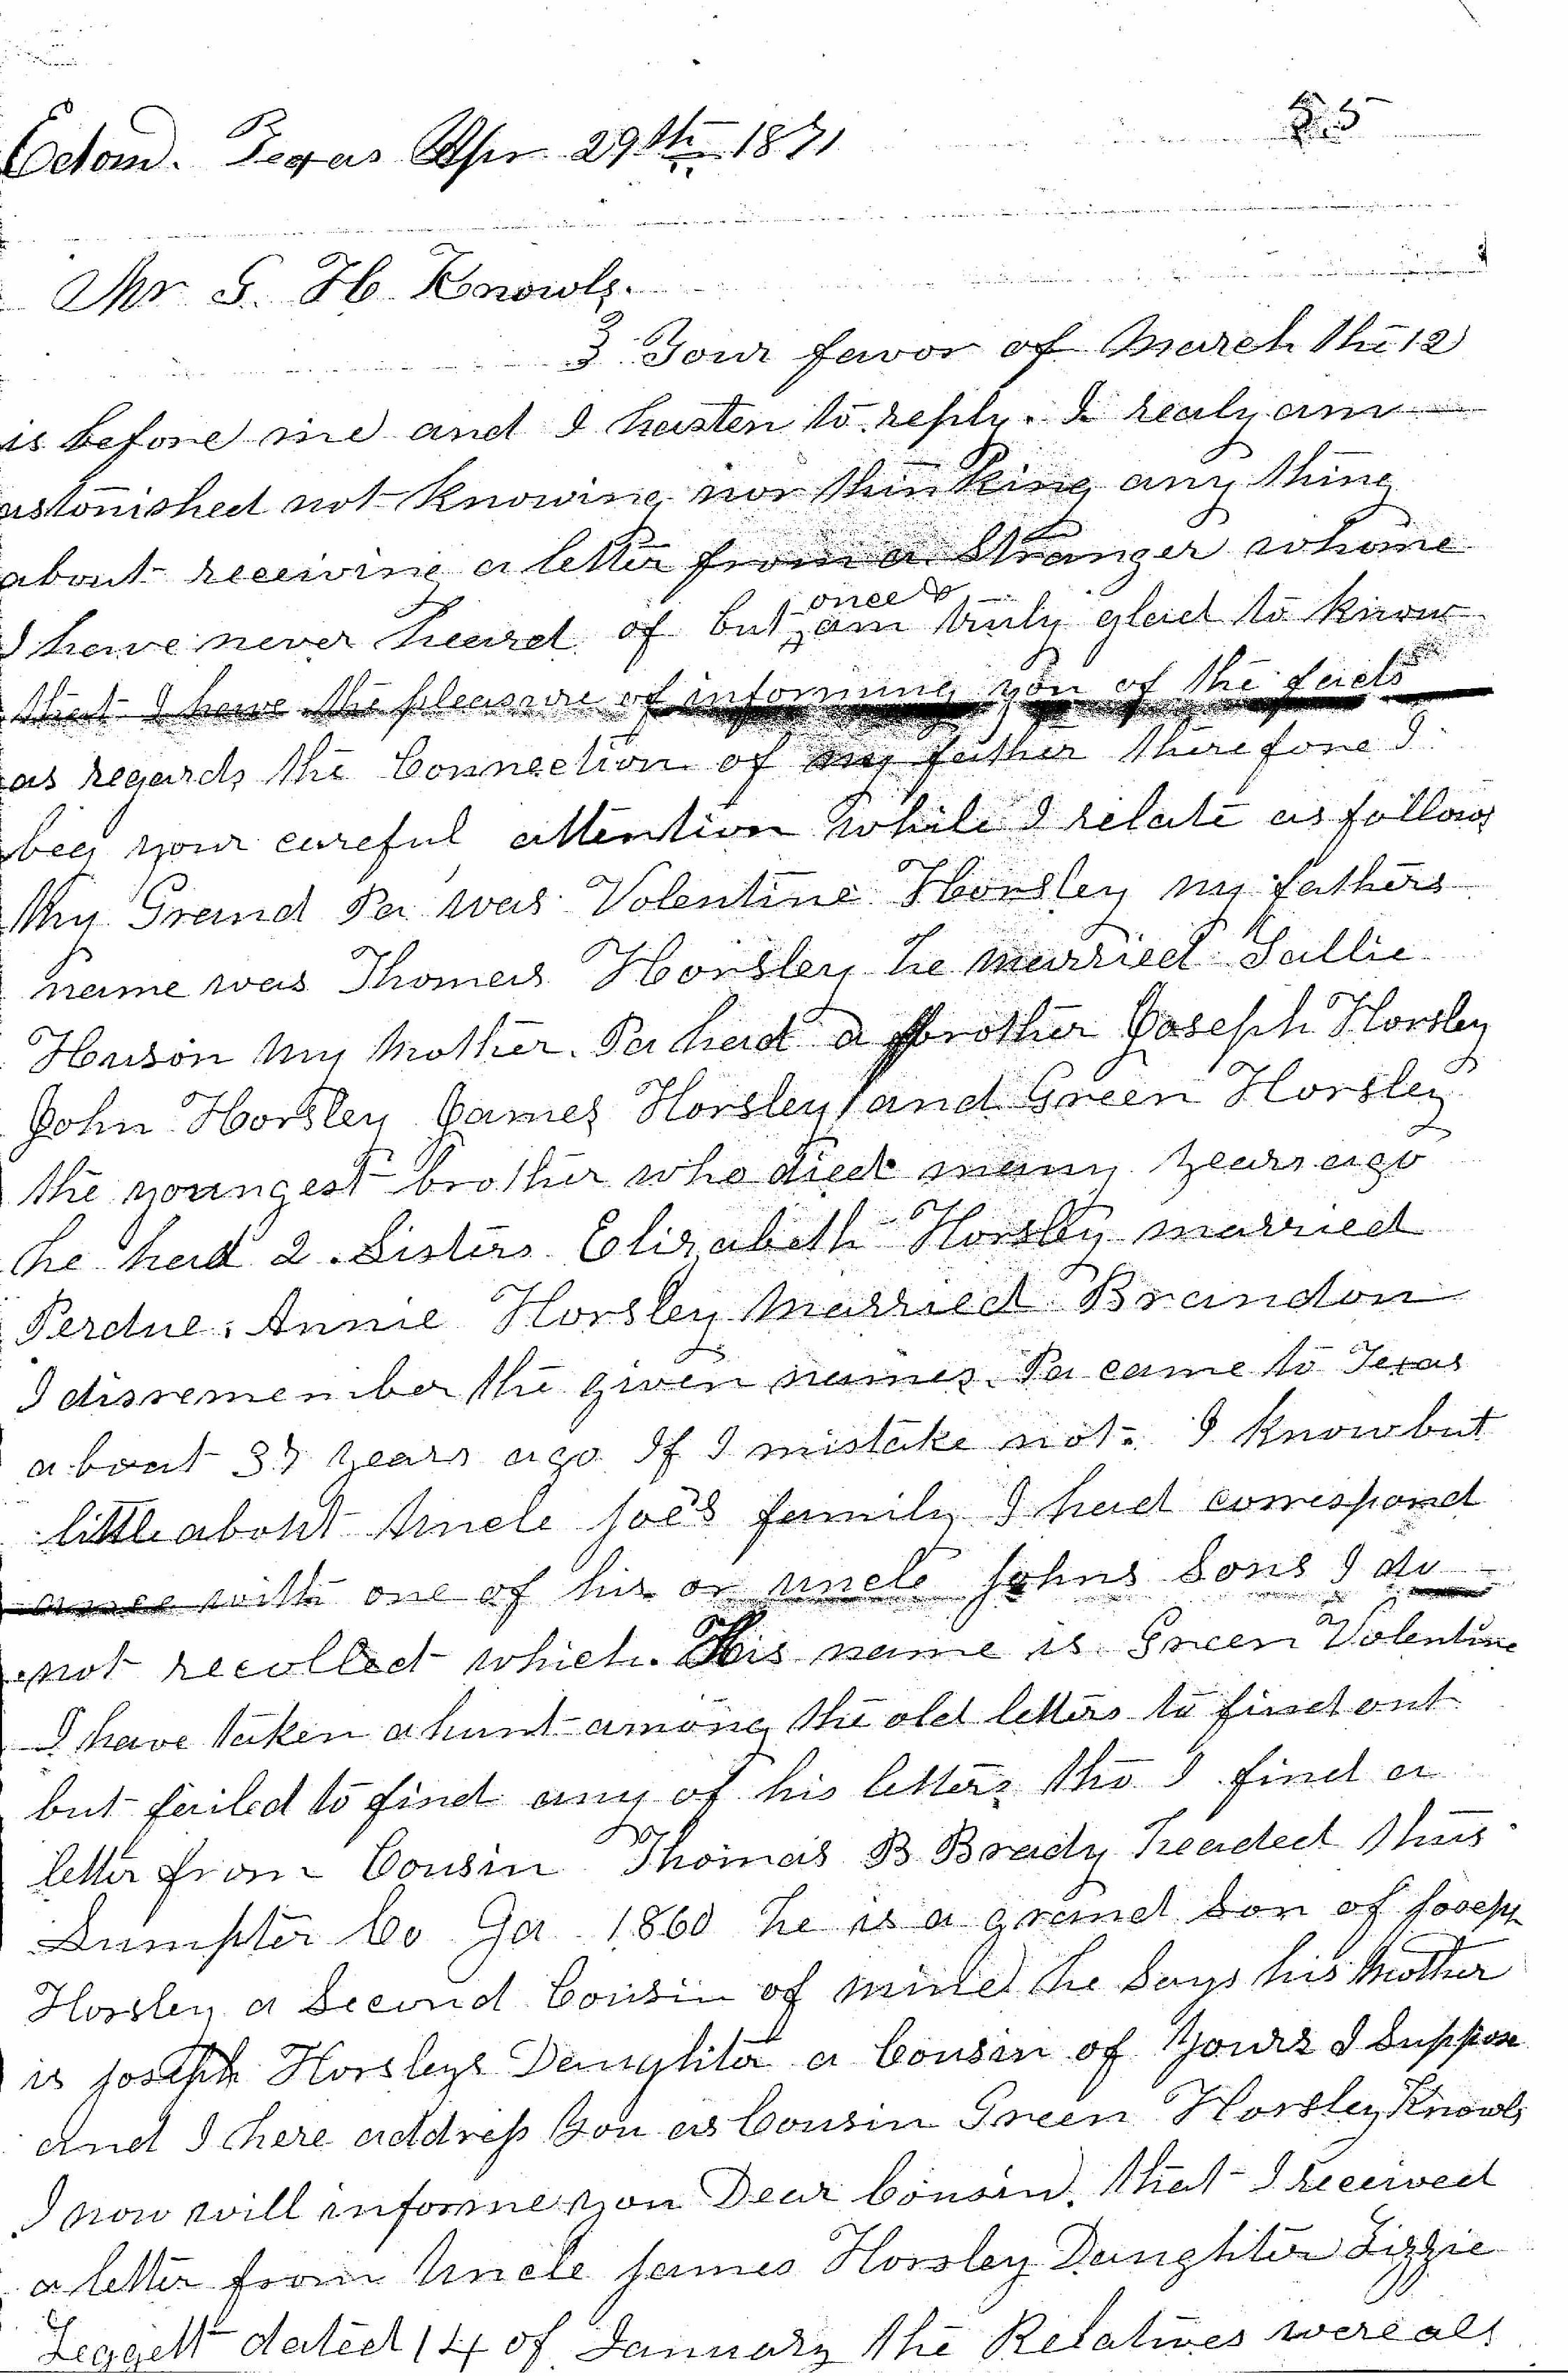 Edom. Texas Apr 29th 1871
Mr G. H Knowls.
Your favor of March the 12
is before me and I hasten to reply. I realy am
astonished not knowing nor thinking any thing
about receiving a letter from a Stranger whome
once &
I have never heard of but am truly glad to know
that I have the pleasure of informing you of the facts
as regards the Connection of my father therefore I
beg your careful attention while I relate as follows
My Grand Pa was Volentine Horsley my fathers
name was Thomas Horsley he married Sallie
Huson my Mother. Pa had a brother Joseph Horsley
John Horsley James Horsley and Green Horsley
the youngest brother who died many years ago
he had 2 Sisters Elizabeth Horsley married
Perdue. Annie Horsley Married Brandon
I disremember the given names. Pa came to Texas
about 37 years ago If I mistake not. I know but
little about Uncle Joe's family I had correspond
ance with one of his or uncle Johns Sons I do
not recollect which. His name is Green Volentine
I have taken a hunt among the old letters to find out
but failed to find any of his letters tho I find a
letter from Cousin Thomas B Brady headed thus
Sumpter Co Ga 1860 he is a grand Son of Joseph
Horsley a Second Cousin of mine he Says his Mother
is Joseph Horsleys Daughter a Cousin of Yours I Suppose
and I here address You as Cousin Green Horsley Knowls
I now will informe you Dear Cousin. that I received
a letter from Uncle James Horsley Daughter Lizzie
Leggett dated 14 of January the Relatives were all